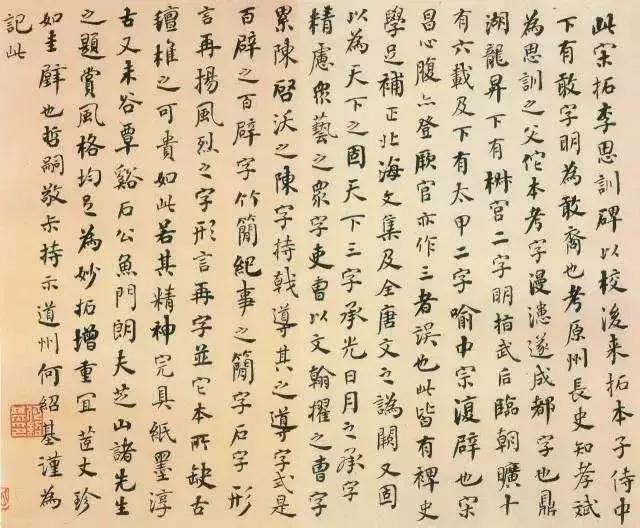 此宋拓李思訓碑以校後来拓本子侍中
下有敢字明為敢裔也考原州長史知孝斌
為思訓之父佗本考字漫漶遂成都字也鼎
湖龍昇下有椒宮二字明指武后臨朝曠十
有六載及下有太甲二字喻中宗復辟也宋
昌心腹亦登厥官亦作三者誤也此皆有裨史
學足補正北海文集及全唐文之譌闕又固
以為天下之固天下三字承光日月之承字
精慮眾藝之眾字吏曹以文翰擢之曹字
累陳啓沃之陳字持戟導其之導字式是
百辟之百辟字竹簡紀事之簡字石字形
言再揚風烈之字形言再字並它本所缺古
氊椎之可貴如此若其精神完具紙墨淳
古又未谷覃谿石公魚門朗夫芝山諸先生
之題賞風格均足為妙拓增重宜荁丈珍
如圭璧也哲嗣敬持示道州何紹基謹為
記此